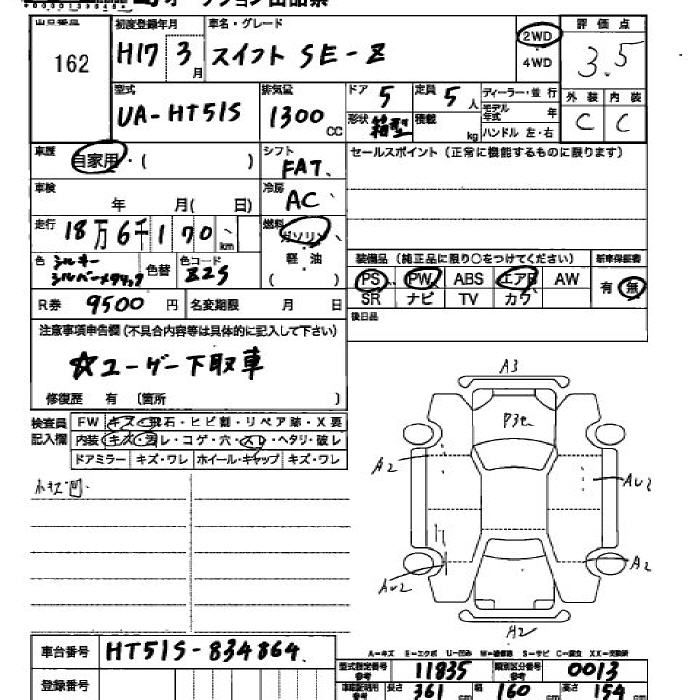 オークション出品票
出品番号 162
初度登録年月 H17 3月
車名・グレード スイフト SE-Z
2WD
4WD
評価点 3.5
型式 UA-HT51S
排気量 1300 CC
ドア 5
定員 5人
形状 箱型
積載 kg
ディーラー・並行
モデル年式 年
ハンドル 左・右
外装 C
内装 C
車歴 自家用・( )
シフト FAT
セールスポイント(正常に機能するものに限ります)
車検 年 月( 日)
冷房 AC
走行 18万6千170km
燃料 ガソリン
軽油
( )
色 シルキーシルバーメタリック
色替
色コード Z2S
装備品(純正品に限り○をつけてください)
新車保証書
PS PW ABS エアB AW
有・無
SR ナビ TV カワ
R券 9500円
名変期限 月 日
後日品
注意事項申告欄(不具合内容等は具体的に記入して下さい)
☆ユーザー下取車
修復歴 有 〔箇所 〕
検査員記入欄
FW キズ・飛石・ヒビ割・リペア跡・X要
内装 キズ・汚レ・コゲ・穴・スレ・ヘタリ・破レ
ドアミラー キズ・ワレ ホイール・キャップ キズ・ワレ
A3
A2
AU2
AU2
A2
A2
A-キズ E-エクボ U-凹み W-補修跡 S-サビ C-腐食 XX-交換跡
車台番号 HT51S-834864
型式指定番号 参考 11835
類別区分番号 参考 0013
登録番号
車庫証明用 参考 長さ 361 cm 幅 160 cm 高さ 154 cm